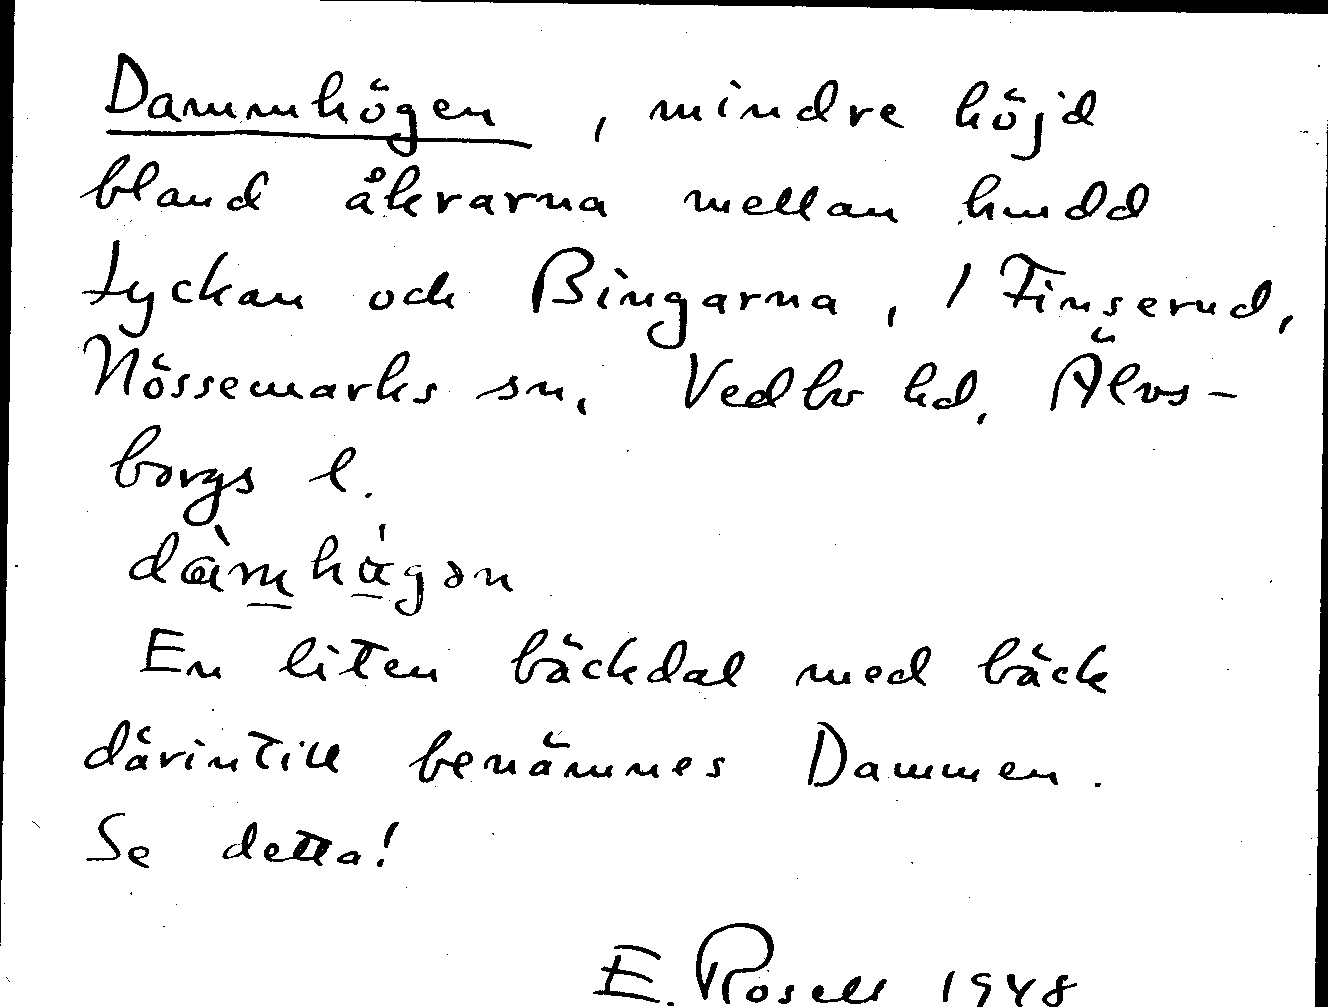 Dammhögen, mindre höjd
bland åkrarna mellan hmdd
Lyckan och Bingarna, 1 Finserud,
Nössemarks sn, Vedbo hd, Älvs-
borgs l.
dàmhágən
En liten bäckdal med bäck
därintill benämnes Dammen.
Se detta!
E. Rosell 1948